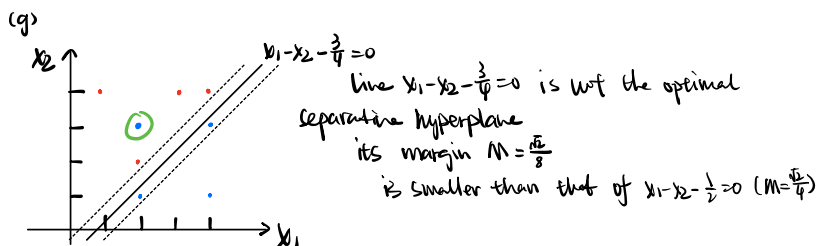 (g)
x₂
x₁-x₂-3/4=0
Line x₁-x₂-3/4=0 is not the optimal
separating hyperplane
its margin M=√2/8
is smaller than that of x₁-x₂-1/2=0 (M=√2/4)
x₁